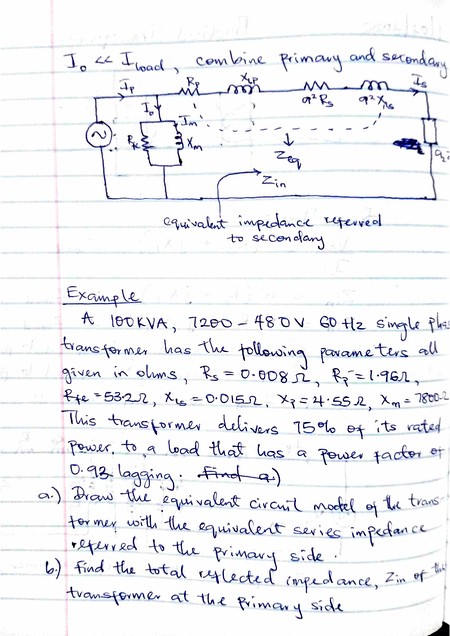 I₀ << I load, combine primary and secondary
Ip Rp XLP a²Rs a²Xls Is
I₀ Im
Rfe Xm
Zeq
Zin
equivalent impedance referred
to secondary
Example
A 100KVA, 7200 - 480V 60Hz single phas
transformer has the following parameters all
given in ohms, Rs = 0.008Ω, Rp = 1.96Ω,
Rfe = 53.2Ω, Xls = 0.015Ω, Xp = 4.55Ω, Xm = 7800Ω
This transformer delivers 75% of its rated
power, to a load that has a power factor of
0.93 lagging. Find a)
a.) Draw the equivalent circuit model of the trans-
former with the equivalent series impedance
referred to the primary side.
b.) Find the total reflected impedance, Zin of the
transformer at the primary side